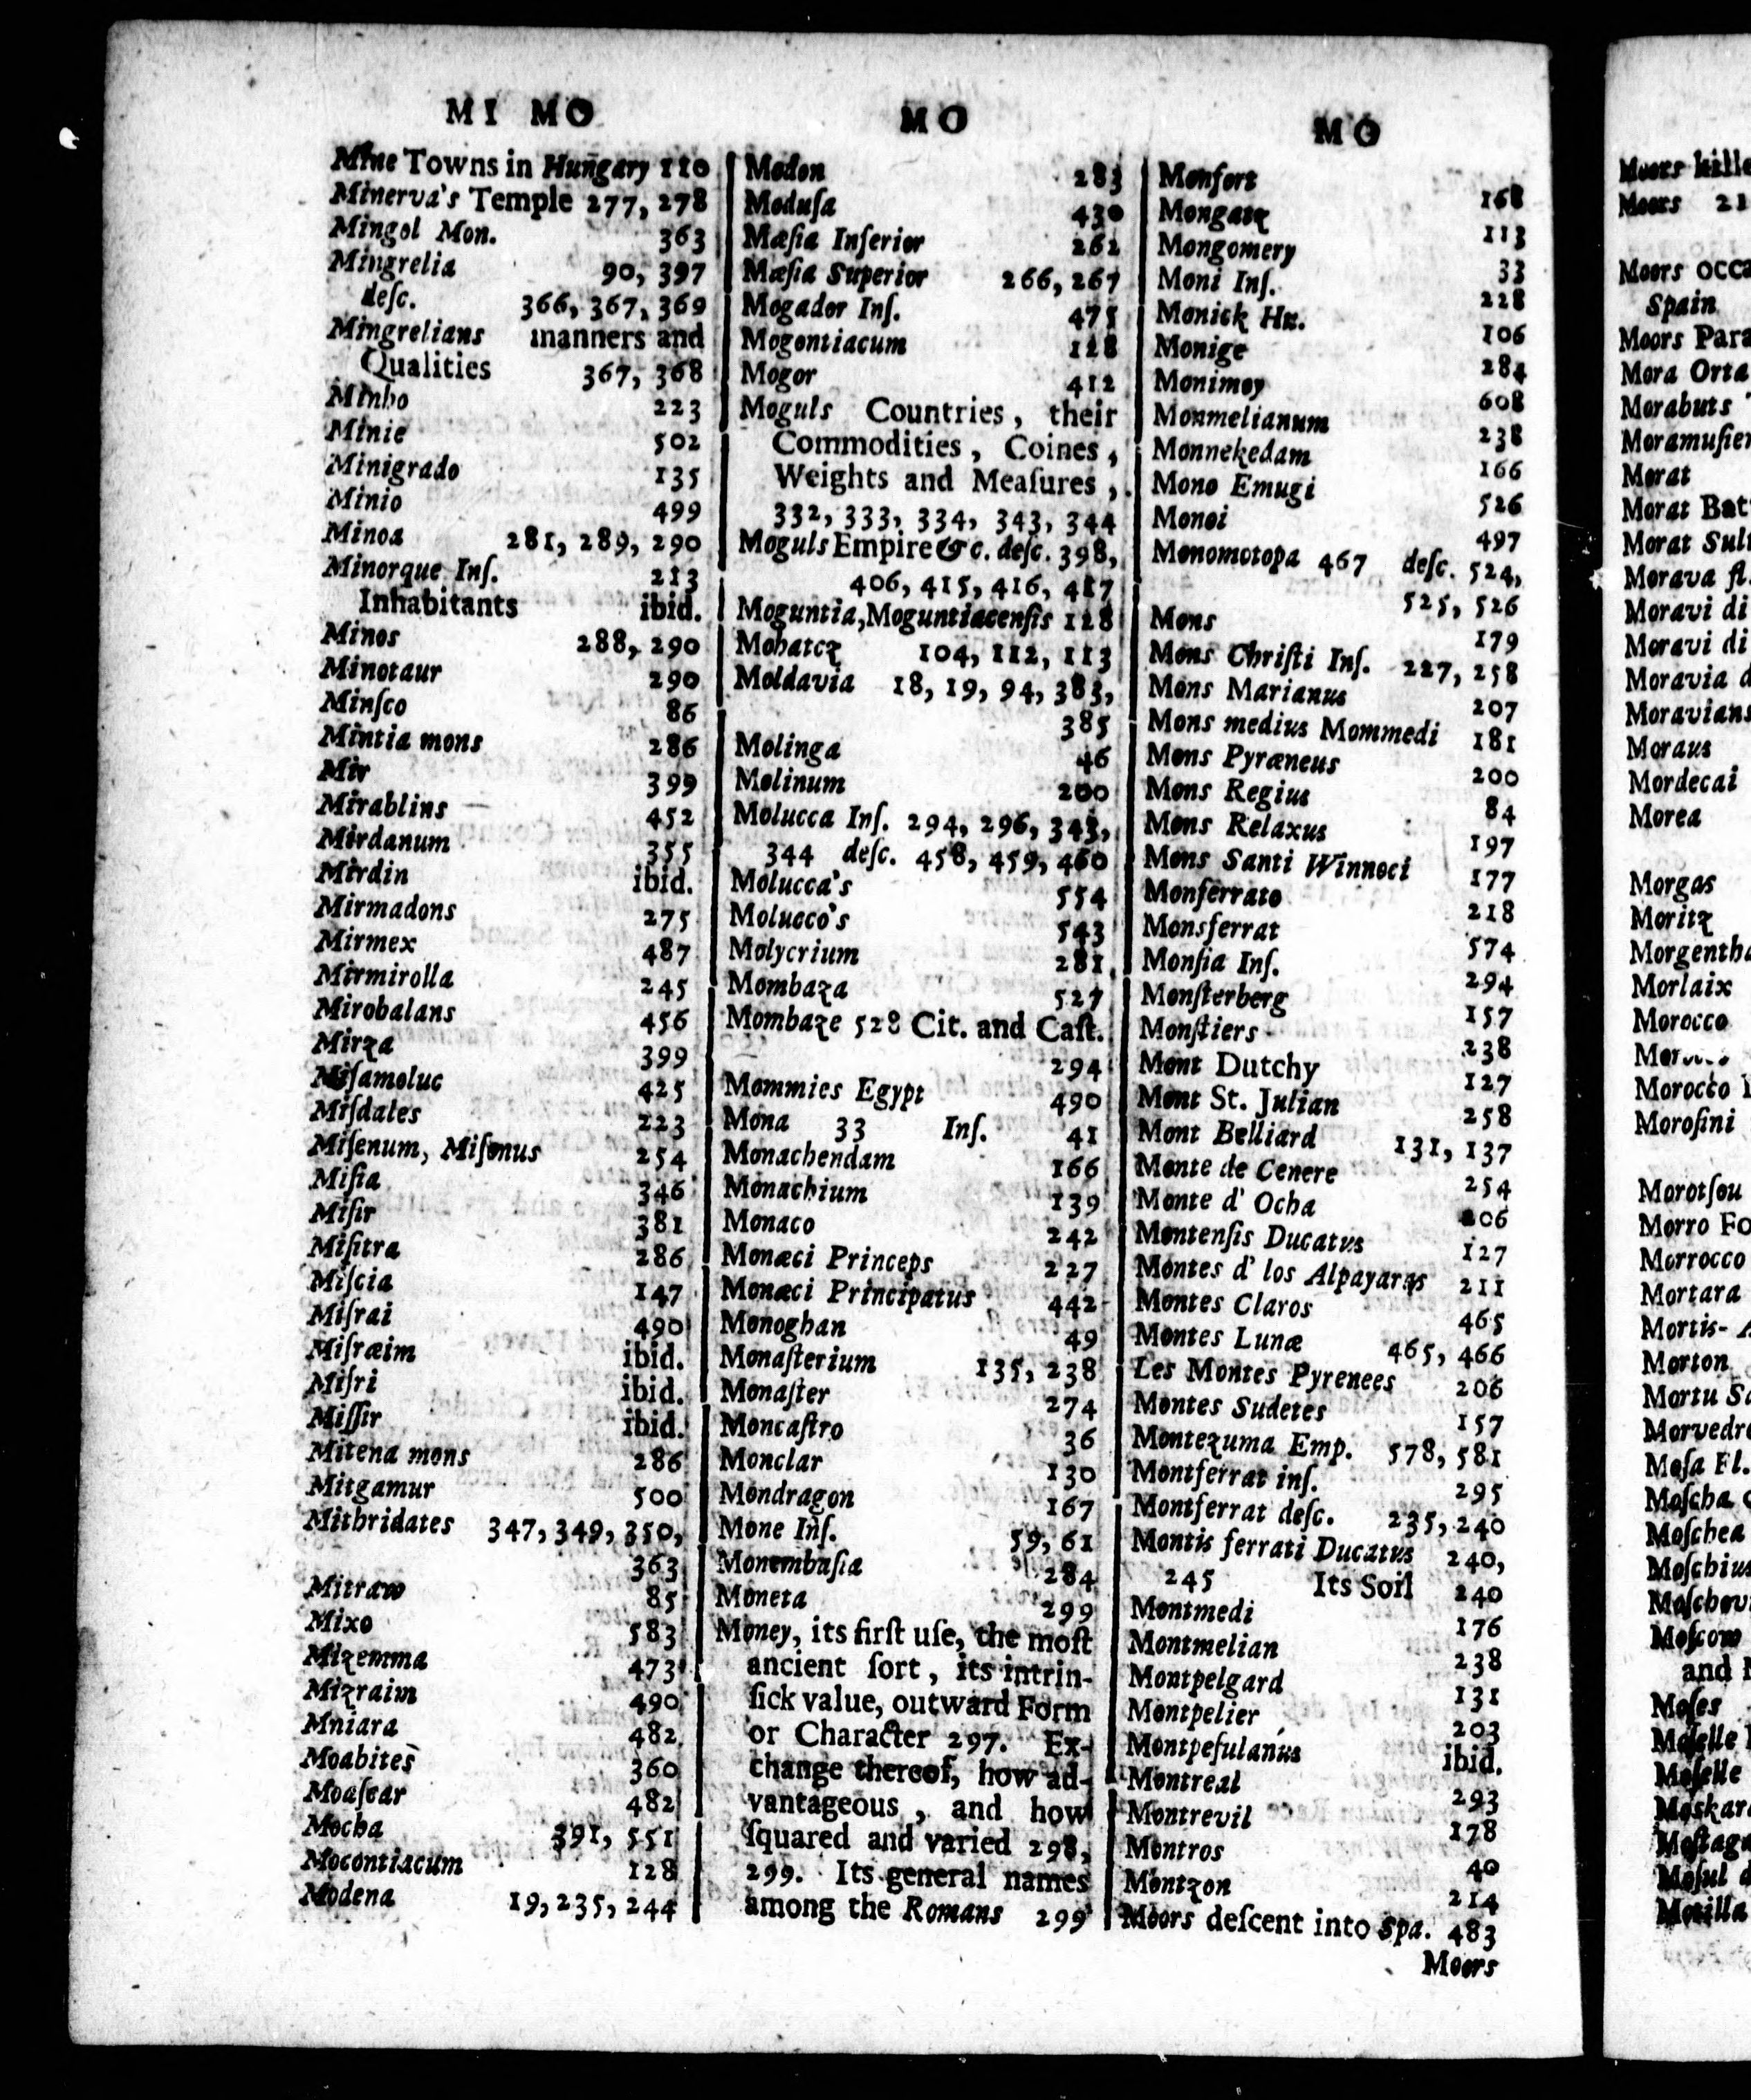 MI MO
Mine Towns in Hungary 110
Minerva's Temple 277, 278
Mingol Mon. 363
Mingrelia 90, 397
deſc. 366, 367, 369
Mingrelians manners and
Qualities 367, 368
Minho 223
Minie 502
Minigrado 135
Minio 499
Minoa 281, 289, 290
Minorque Inſ. 213
Inhabitants ibid.
Minos 288, 290
Minotaur 290
Minſco 86
Mintia mons 286
Mir 399
Mirablins 452
Mirdanum 355
Mirdin ibid.
Mirmadons 275
Mirmex 487
Mirmirolla 245
Mirobalans 456
Mirza 399
Miſamoluc 425
Miſdates 223
Miſenum, Miſenus 254
Miſia 346
Miſir 381
Miſitra 286
Miſcia 147
Miſrai 490
Miſræim ibid.
Miſri ibid.
Miſſir ibid.
Mitena mons 286
Mitgamur 500
Mithridates 347, 349, 350,
363
Mitraw 85
Mixo 583
Mizemma 473
Mizraim 490
Mniara 482
Moabites 360
Moaſcar 482
Mocha 391, 551
Mocontiacum 128
Modena 19, 235, 244
MO
Modon 283
Moduſa 430
Mœſia Inferior 262
Mœſia Superior 266, 267
Mogador Inſ. 475
Mogontiacum 128
Mogor 412
Moguls Countries, their
Commodities, Coines,
Weights and Meaſures,
332, 333, 334, 343, 344
Moguls Empire &c. deſc. 398,
406, 415, 416, 417
Moguntia, Moguntiacenſis 128
Mohatcz 104, 112, 113
Moldavia 18, 19, 94, 383,
385
Molinga 46
Molinum 200
Molucca Inſ. 294, 296, 343,
344 deſc. 458, 459, 460
Molucca's 554
Molucco's 543
Molycrium 281
Mombaza 527
Mombaze 528 Cit. and Caſt.
294
Mommies Egypt 490
Mona 33 Inſ. 41
Monachendam 166
Monachium 139
Monaco 242
Monæci Princeps 227
Monæci Principatus 442
Monoghan 49
Monaſterium 135, 238
Monaſter 274
Moncaſtro 36
Monclar 130
Mondragon 167
Mone Inſ. 59, 61
Monembaſia 284
Moneta 299
Money, its firſt uſe, the moſt
ancient ſort, its intrin-
ſick value, outward Form
or Character 297. Ex-
change thereof, how ad-
vantageous, and how
ſquared and varied 298,
299. Its general names
among the Romans 299
MO
Monfort 168
Mongatz 113
Mongomery 33
Moni Inſ. 228
Monick Hu. 106
Monige 284
Monimoy 608
Monmelianum 238
Monnekedam 166
Mono Emugi 526
Monoi 497
Monomotopa 467 deſc. 524,
525, 526
Mons 179
Mons Chriſti Inſ. 227, 258
Mons Marianus 207
Mons medius Mommedi 181
Mons Pyræneus 200
Mons Regius 84
Mons Relaxus 197
Mons Santi Winnoci 177
Monferrato 218
Monsferrat 574
Monſia Inſ. 294
Monſterberg 157
Monſtiers 238
Mont Dutchy 127
Mont St. Julian 258
Mont Belliard 131, 137
Monte de Cenere 254
Monte d' Ocha 206
Montenſis Ducatvs 127
Montes d' los Alpayaras 211
Montes Claros 465
Montes Lunæ 465, 466
Les Montes Pyrenees 206
Montes Sudetes 157
Montezuma Emp. 578, 581
Montferrat inſ. 295
Montferrat deſc. 235, 240
Montis ferrati Ducatvs 240,
245 Its Soil 240
Montmedi 176
Montmelian 238
Montpelgard 131
Montpelier 203
Montpeſulanus ibid.
Montreal 293
Montrevil 178
Montros 40
Montzon 214
Moors deſcent into Spa. 483
Moors
Moors kille
Moors 21
Moors occa
Spain
Moors Para
Mora Orta
Morabuts
Moramuſier
Morat
Morat Bat
Morat Sult
Morava fl.
Moravi di
Moravi di
Moravia d
Moravians
Moraus
Mordecai
Morea
Morgas
Moritz
Morgentha
Morlaix
Morocco
Morocco
Moroſini
Morotſou
Morro Fo
Morrocco
Mortara
Mortis-
Morton
Mortu Sa
Morvedro
Moſa Fl.
Moſcha
Moſchea
Moſchius
Moſchovi
Moſcow
and
Moſes
Moſelle
Moſelle
Moskar
Moſtaga
Moſul d
Motilla